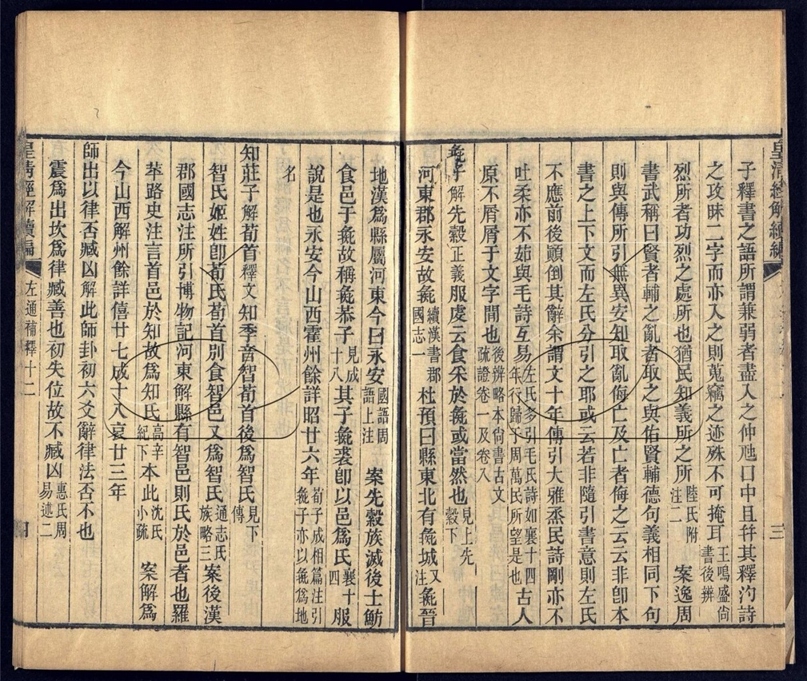 皇清經解續編
三
子釋書之語所謂兼弱者盡入之仲虺口中且幷其釋汋詩
之攻昧二字而亦入之則蒐竊之迹殊不可掩耳王鳴盛尚書後辨
烈所者功烈之處所也猶民知義所之所陸氏附注二 案逸周
書武稱曰賢者輔之亂者取之與佑賢輔德句義相同下句
則與傳所引無異安知取亂侮亡及亡者侮之云云非卽本
書之上下文而左氏分引之耶或云若非隨引書意則左氏
不應前後顚倒其辭余謂文十年傳引大雅烝民詩剛亦不
吐柔亦不茹與毛詩互易左氏多引毛氏詩如襄十四年行歸于周萬民所望是也古人
原不屑屑于文字間也後辨略本尙書古文疏證卷一及卷八
彘子解先縠正義服虔云食采於彘或當然也見上先縠下
河東郡永安故彘續漢書郡國志一 杜預曰縣東北有彘城又注彘晉
地漢爲縣屬河東今曰永安國語周語上注 案先縠族滅後士魴
食邑于彘故稱彘恭子見成十八其子彘裘卽以邑爲氏襄十四服
說是也永安今山西霍州餘詳昭廿六年荀子成相篇注引彘子亦以彘爲地
名
知莊子解荀首釋文知季音智荀首後爲智氏見下傳
智氏姬姓卽荀氏荀首別食智邑又爲智氏通志氏族略三案後漢
郡國志注所引博物記河東解縣有智邑則氏於邑者也羅
苹路史注言首邑於知故爲知氏高辛紀下本此沈氏小疏 案解爲
今山西解州餘詳僖廿七成十八哀廿三年
師出以律否臧凶解此師卦初六爻辭律法否不也
震爲出坎爲律臧善也初失位故不臧凶惠氏周易述二
皇清經解續編
左通補釋十二
四